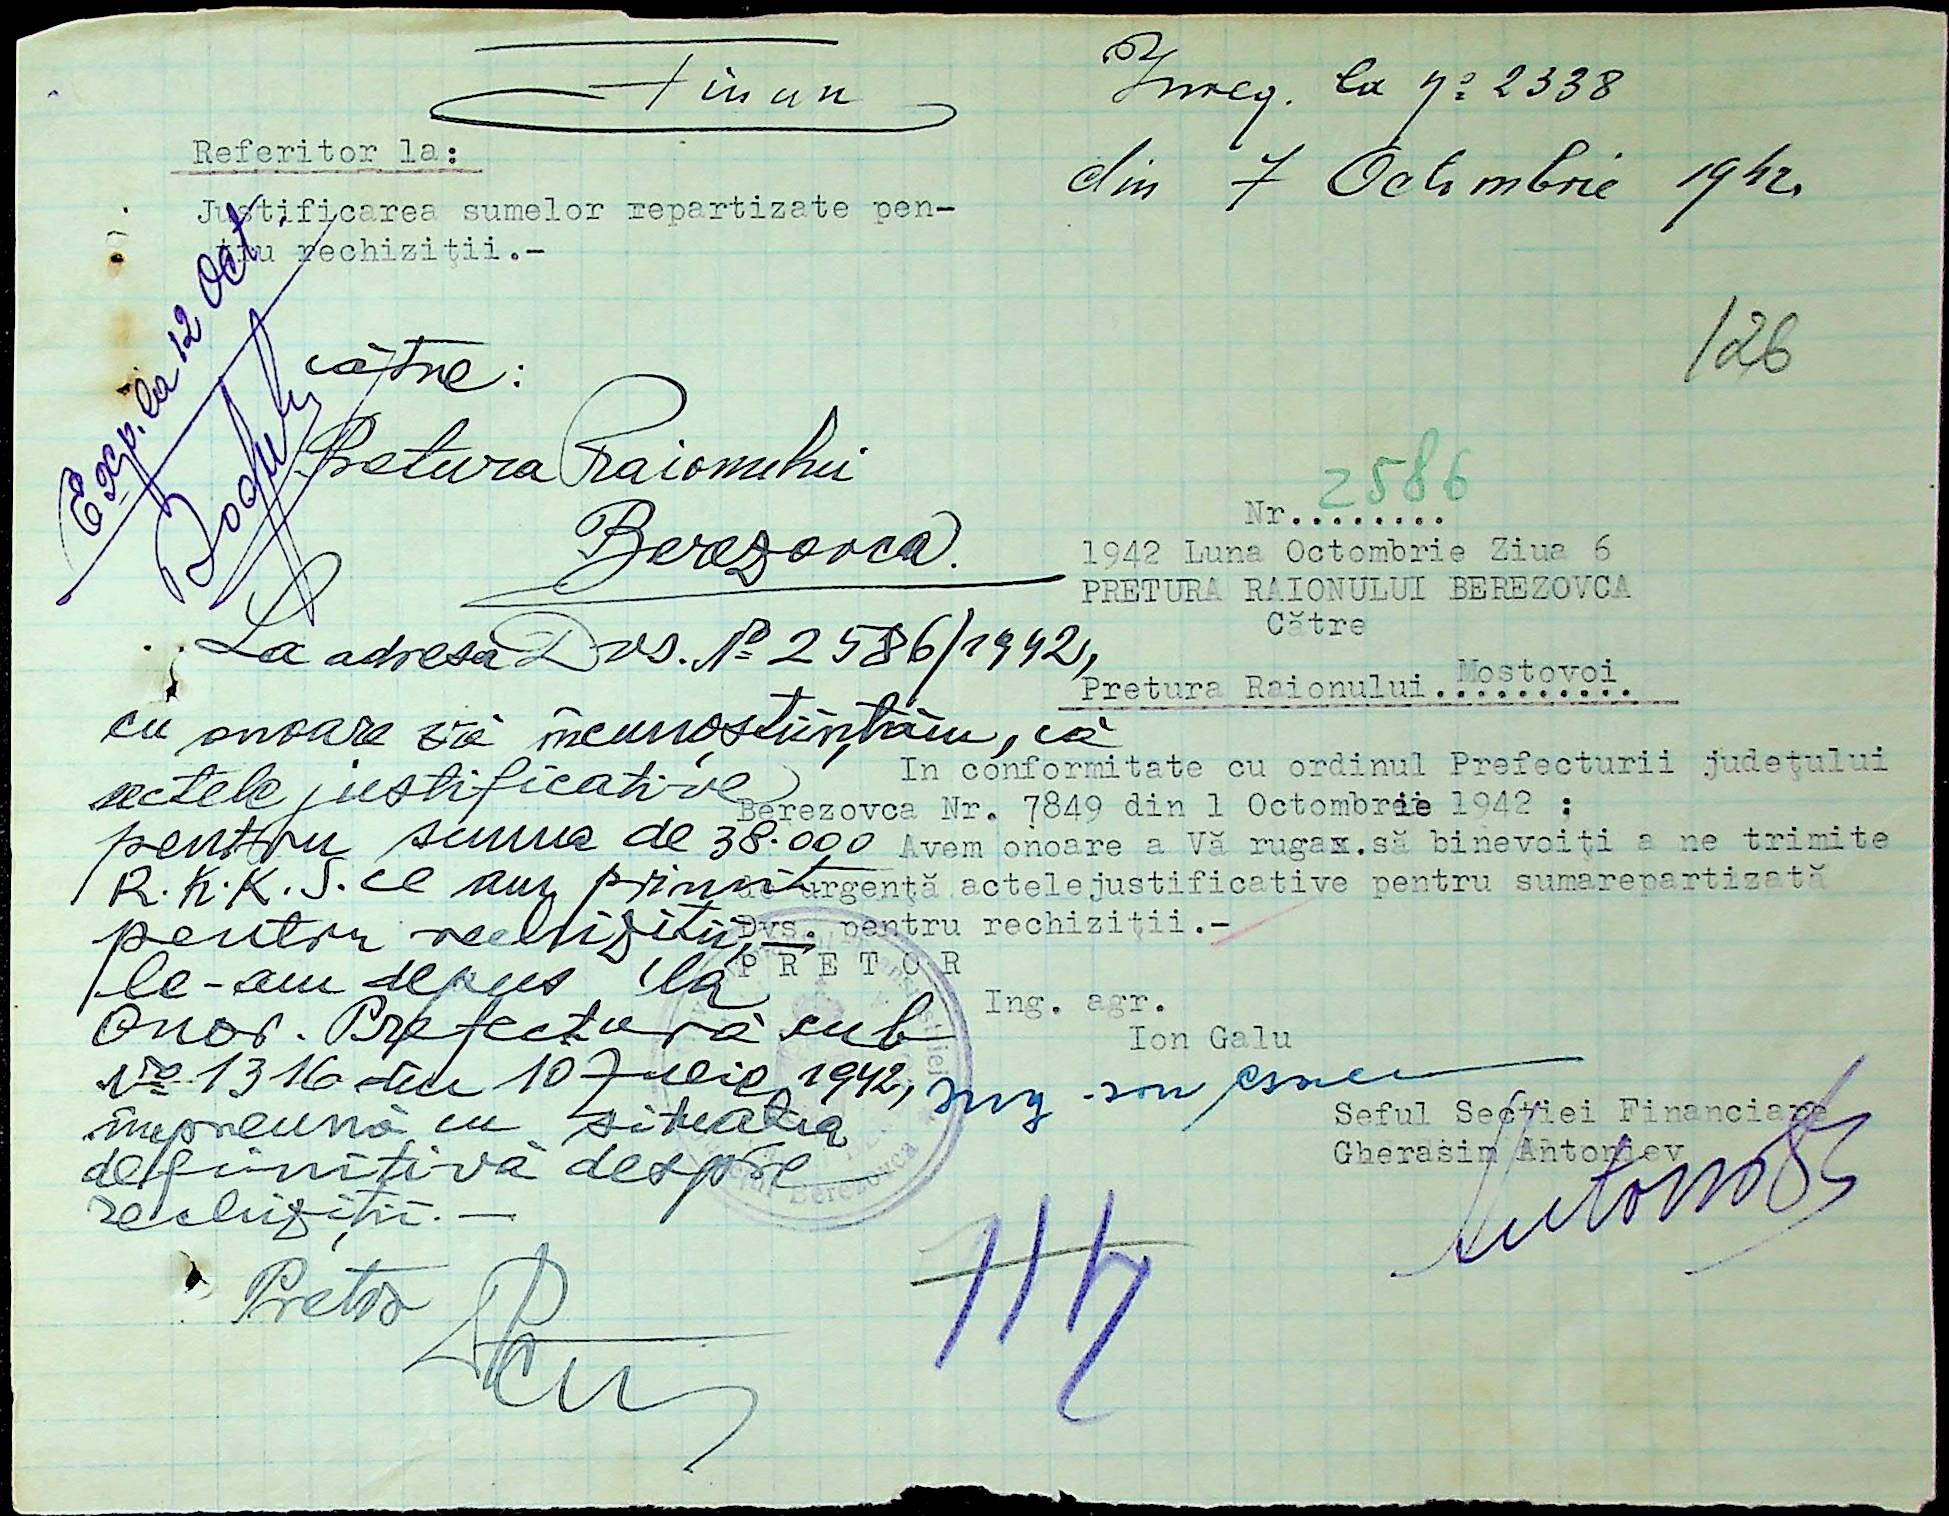 Finan
Inreg. la № 2338
din 7 Octombrie 1942.
Referitor la:
Justificarea sumelor repartizate pen-
tru rechiziţii.-
Exp. la 12 Oct.
126
către:
Pretura Raionului
Berezovca.
La adresa Dvs. № 2586/1942,
cu onoare vă încunoştiinţăm, că
actele justificative
pentru suma de 38.000
R.K.K.S. ce am primit
pentru rechiziţii, —
le-am depus la
Onor. Prefectură sub
№ 1316 din 10 Iulie 1942,
împreună cu situaţia
definitivă despre
rechiziţii. —
Pretor
2586
Nr.........
1942 Luna Octombrie Ziua 6
PRETURA RAIONULUI BEREZOVCA
Către
Pretura Raionului Mostovoi
In conformitate cu ordinul Prefecturii judeţului
Berezovca Nr. 7849 din 1 Octombrie 1942 ;
Avem onoare a Vă rugax.să binevoiţi a ne trimite
de urgenţă actelejustificative pentru sumarepartizată
Dvs. pentru rechiziţii.-
P R E T O R
Ing. agr.
Ion Galu
Seful Secţiei Financiare
Gherasim Antoniev
Berezovca